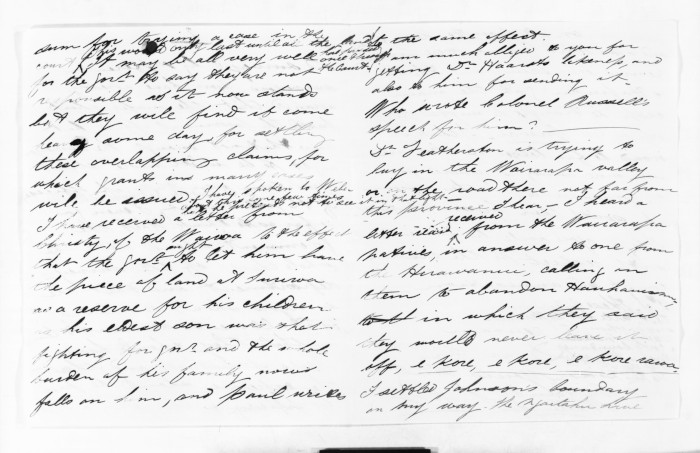 sum for trying a case in the
court. This would only last until all the land
It may be all very well
for the govt to say they are not
responsible as it now stands
but they will find it come
heavy some day, for settling
these overlapping claims, for
which grants in many cases
will be issued. I have spoken to
I have received a letter from
of the Wairoa to the effect
that the govt ought to let him have
the piece of land at Turiroa
as a reserve for his children
as his eldest son was shot
fighting for govt and the whole
burden of his family now
falls on him, and Paul writes
to the same effect.
I am much obliged to you for
getting Dr Haast's likeness, and
also to him for sending it.
Who wrote Colonel Russell's
speech for him?
Dr Featherston is trying to
buy in the Wairarapa valley
or on the road there not far from
this province I hear, I heard a
letter read received from the Wairarapa
natives, in answer to one from
Te Hirawanu, calling on
them to abandon Hauhauism,
in which they said
they would never leave it
off, e kore, e kore, e kore rawa.
I settled Johnson's boundary
on my way. The Ngaitahu line